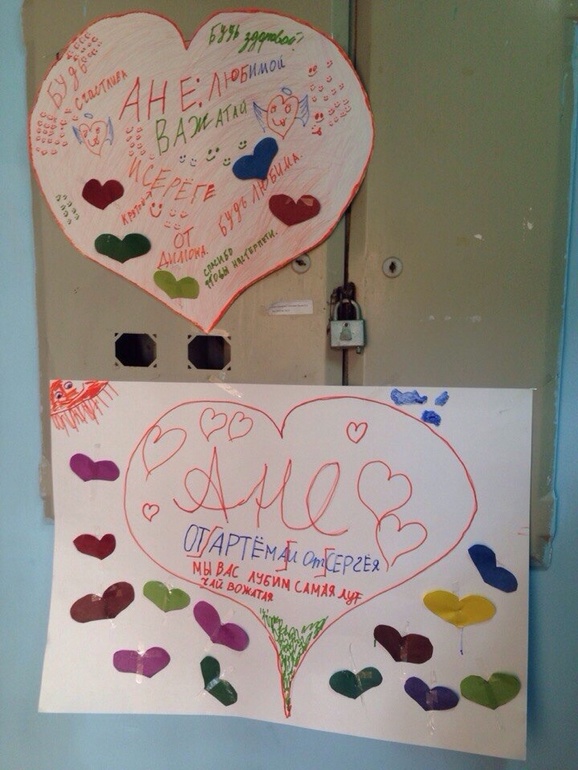 Будь здоровой!
БУДЬ
счастлива
АНЕ: ЛЮБИМОЙ
ВАЖАТАЙ
И СЕРЁГЕ
крутой
БУДЬ ЛЮБИМА
ОТ
ДИМОНА.
спасибо
АНЕ
ОТ АРТЁМА И от СЕРГЕЯ
МЫ ВАС ЛУБИМ САМАЯ ЛУТ
ЧАЙ ВОЖАТАЯ